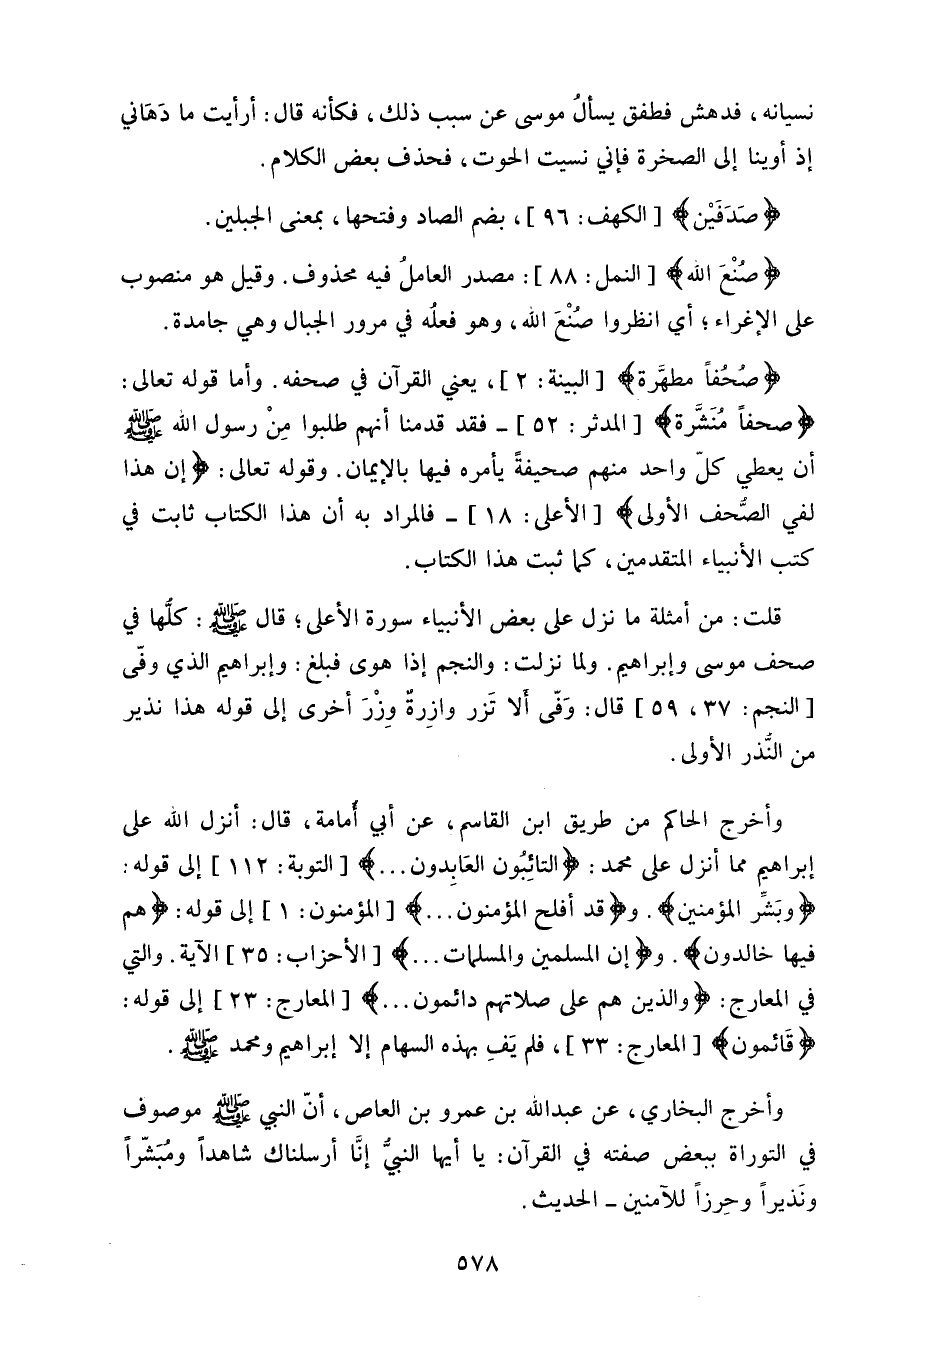 نسيانه، فدهش فطفق يسألُ موسى عن سبب ذلك، فكأنه قال: أرأيت ما دَهَاني
إذ أوينا إلى الصخرة فإني نسيت الحوت، فحذف بعض الكلام.
﴿صَدَفَيْن﴾ [الكهف: ٩٦]، بضم الصاد وفتحها، بمعنى الجبلين.
﴿صُنْعَ الله﴾ [النمل: ٨٨]: مصدر العاملُ فيه محذوف. وقيل هو منصوب
على الإغراء؛ أي انظروا صُنْعَ الله، وهو فعلُه في مرور الجبال وهي جامدة.
﴿صُحُفاً مطهَّرة﴾ [البينة: ٢]، يعني القرآن في صحفه. وأما قوله تعالى:
﴿صحفاً مُنَشَّرة﴾ [المدثر: ٥٢] ـ فقد قدمنا أنهم طلبوا مِنْ رسول الله ﷺ
أن يعطي كلّ واحد منهم صحيفةً يأمره فيها بالإيمان. وقوله تعالى: ﴿إن هذا
لفي الصُّحف الأولى﴾ [الأعلى: ١٨] ـ فالمراد به أن هذا الكتاب ثابت في
كتب الأنبياء المتقدمين، كما ثبت هذا الكتاب.
قلت: من أمثلة ما نزل على بعض الأنبياء سورة الأعلى؛ قال ﷺ: كلُّها في
صحف موسى وإبراهيم. ولما نزلت: والنجم إذا هوى فبلغ: وإبراهيم الذي وفّى
[النجم: ٣٧، ٥٩] قال: وَفّى أَلا تَزر وازِرةٌ وِزْرَ أخرى إلى قوله هذا نذير
من النُّذر الأولى.
وأخرج الحاكم من طريق ابن القاسم، عن أبي أُمامة، قال: أنزل الله على
إبراهيم مما أنزل على محمد: ﴿التائِبُون العَابِدون...﴾ [التوبة: ١١٢] إلى قوله:
﴿وبَشِّر المؤمنين﴾. و﴿قد أفلح المؤمنون...﴾ [المؤمنون: ١] إلى قوله: ﴿هم
فيها خالدون﴾. و﴿إن المسلمين والمسلمات...﴾ [الأحزاب: ٣٥] الآية. والتي
في المعارج: ﴿والذين هم على صلاتهم دائمون...﴾ [المعارج: ٢٣] إلى قوله:
﴿قَائمون﴾ [المعارج: ٣٣]، فلم يَفِ بهذه السهام إلا إبراهيم ومحمد ﷺ.
وأخرج البخاري، عن عبدالله بن عمرو بن العاص، أنّ النبي ﷺ موصوف
في التوراة ببعض صفته في القرآن: يا أيها النبيُّ إنَّا أرسلناك شاهداً ومُبَشّراً
ونَذيراً وحِرزاً للآمنين ـ الحديث.
٥٧٨